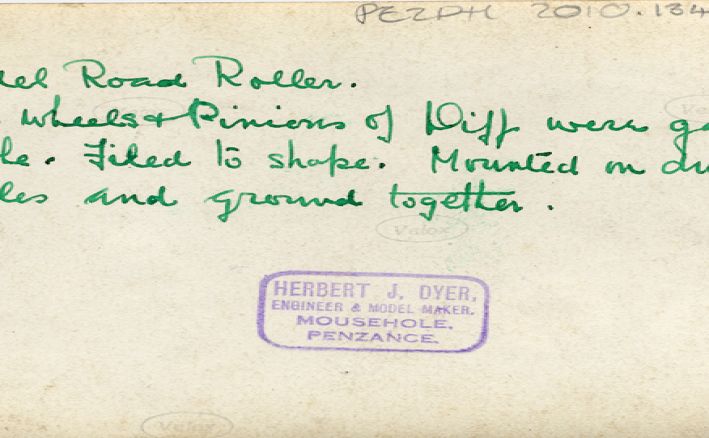 PEZPH 2010.134
del Road Roller.
wheels & Pinions of Diff were ga
le. Filed to shape. Mounted on du
les and ground together.
Velox
HERBERT J. DYER,
ENGINEER & MODEL MAKER.
MOUSEHOLE,
PENZANCE.
Velox